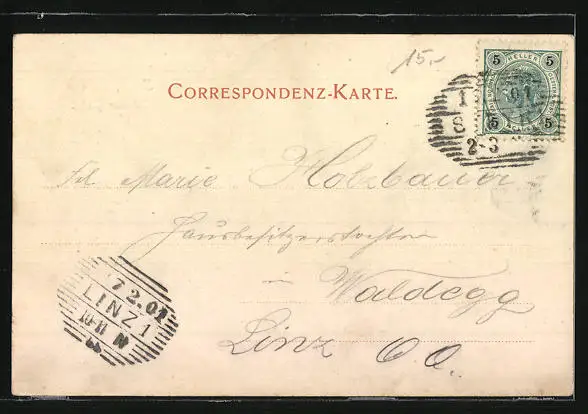 15.-
HELLER
5 5
5 5
1 01
S
2-3
CORRESPONDENZ-KARTE.
Frl. Marie Holzbauer
Hausbesitzerstochter
in Waldegg
Linz O.Ö.
7 2.01
LINZ 1
10-11 N